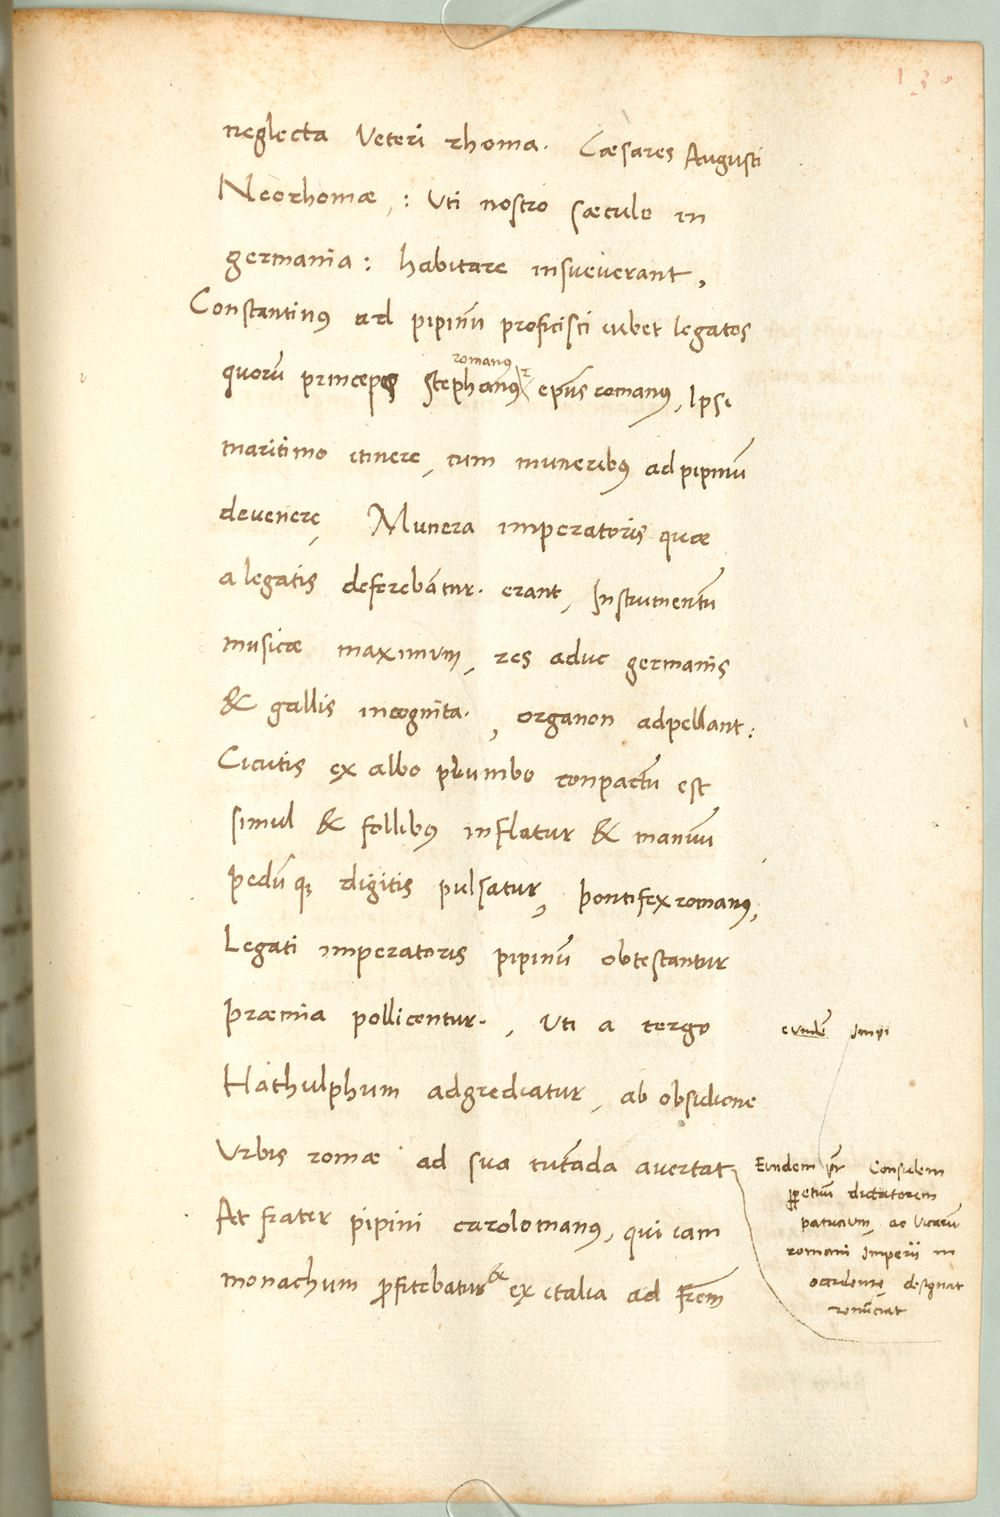 130
neglecta Veteri rhoma. Cæsares Augusti
Neorhomæ,: Uti nostro sæculo in
germania: habitare insueuerant,
Constantinꝰ ad pipinū proficisci iubet legatos
quorū princeps Stephanꝰ romanꝰ epūs romanꝰ, Ipsi
maritimo itinere, cum muneribꝰ ad pipinū
deuenere, Munera imperatoris quæ
a legatis deferebātur. erant, Instrumentū
musicæ maximum, res aduc germanis
& gallis incognita., organon adpellant:
Cicutis ex albo plumbo conpactū est
simul & follibꝰ inflatur & manuū
pedūqꝫ digitis pulsatur, pontifex romanꝰ,
Legati imperatoris pipinū obtestantur
præmia pollicentur., Uti a tergo
Hathulphum adgrediatur, ab obsidione
Urbis romæ ad sua tutāda auertat
At frater pipini carolomanꝰ, qui iam
monachum ꝓfitebatur & ex italia ad frēm
eundē
Eundem Consulem
ꝑpetuū dictatorem
patricium, ac Vicariū
romani Imperii in
occidente, designat
renūciat